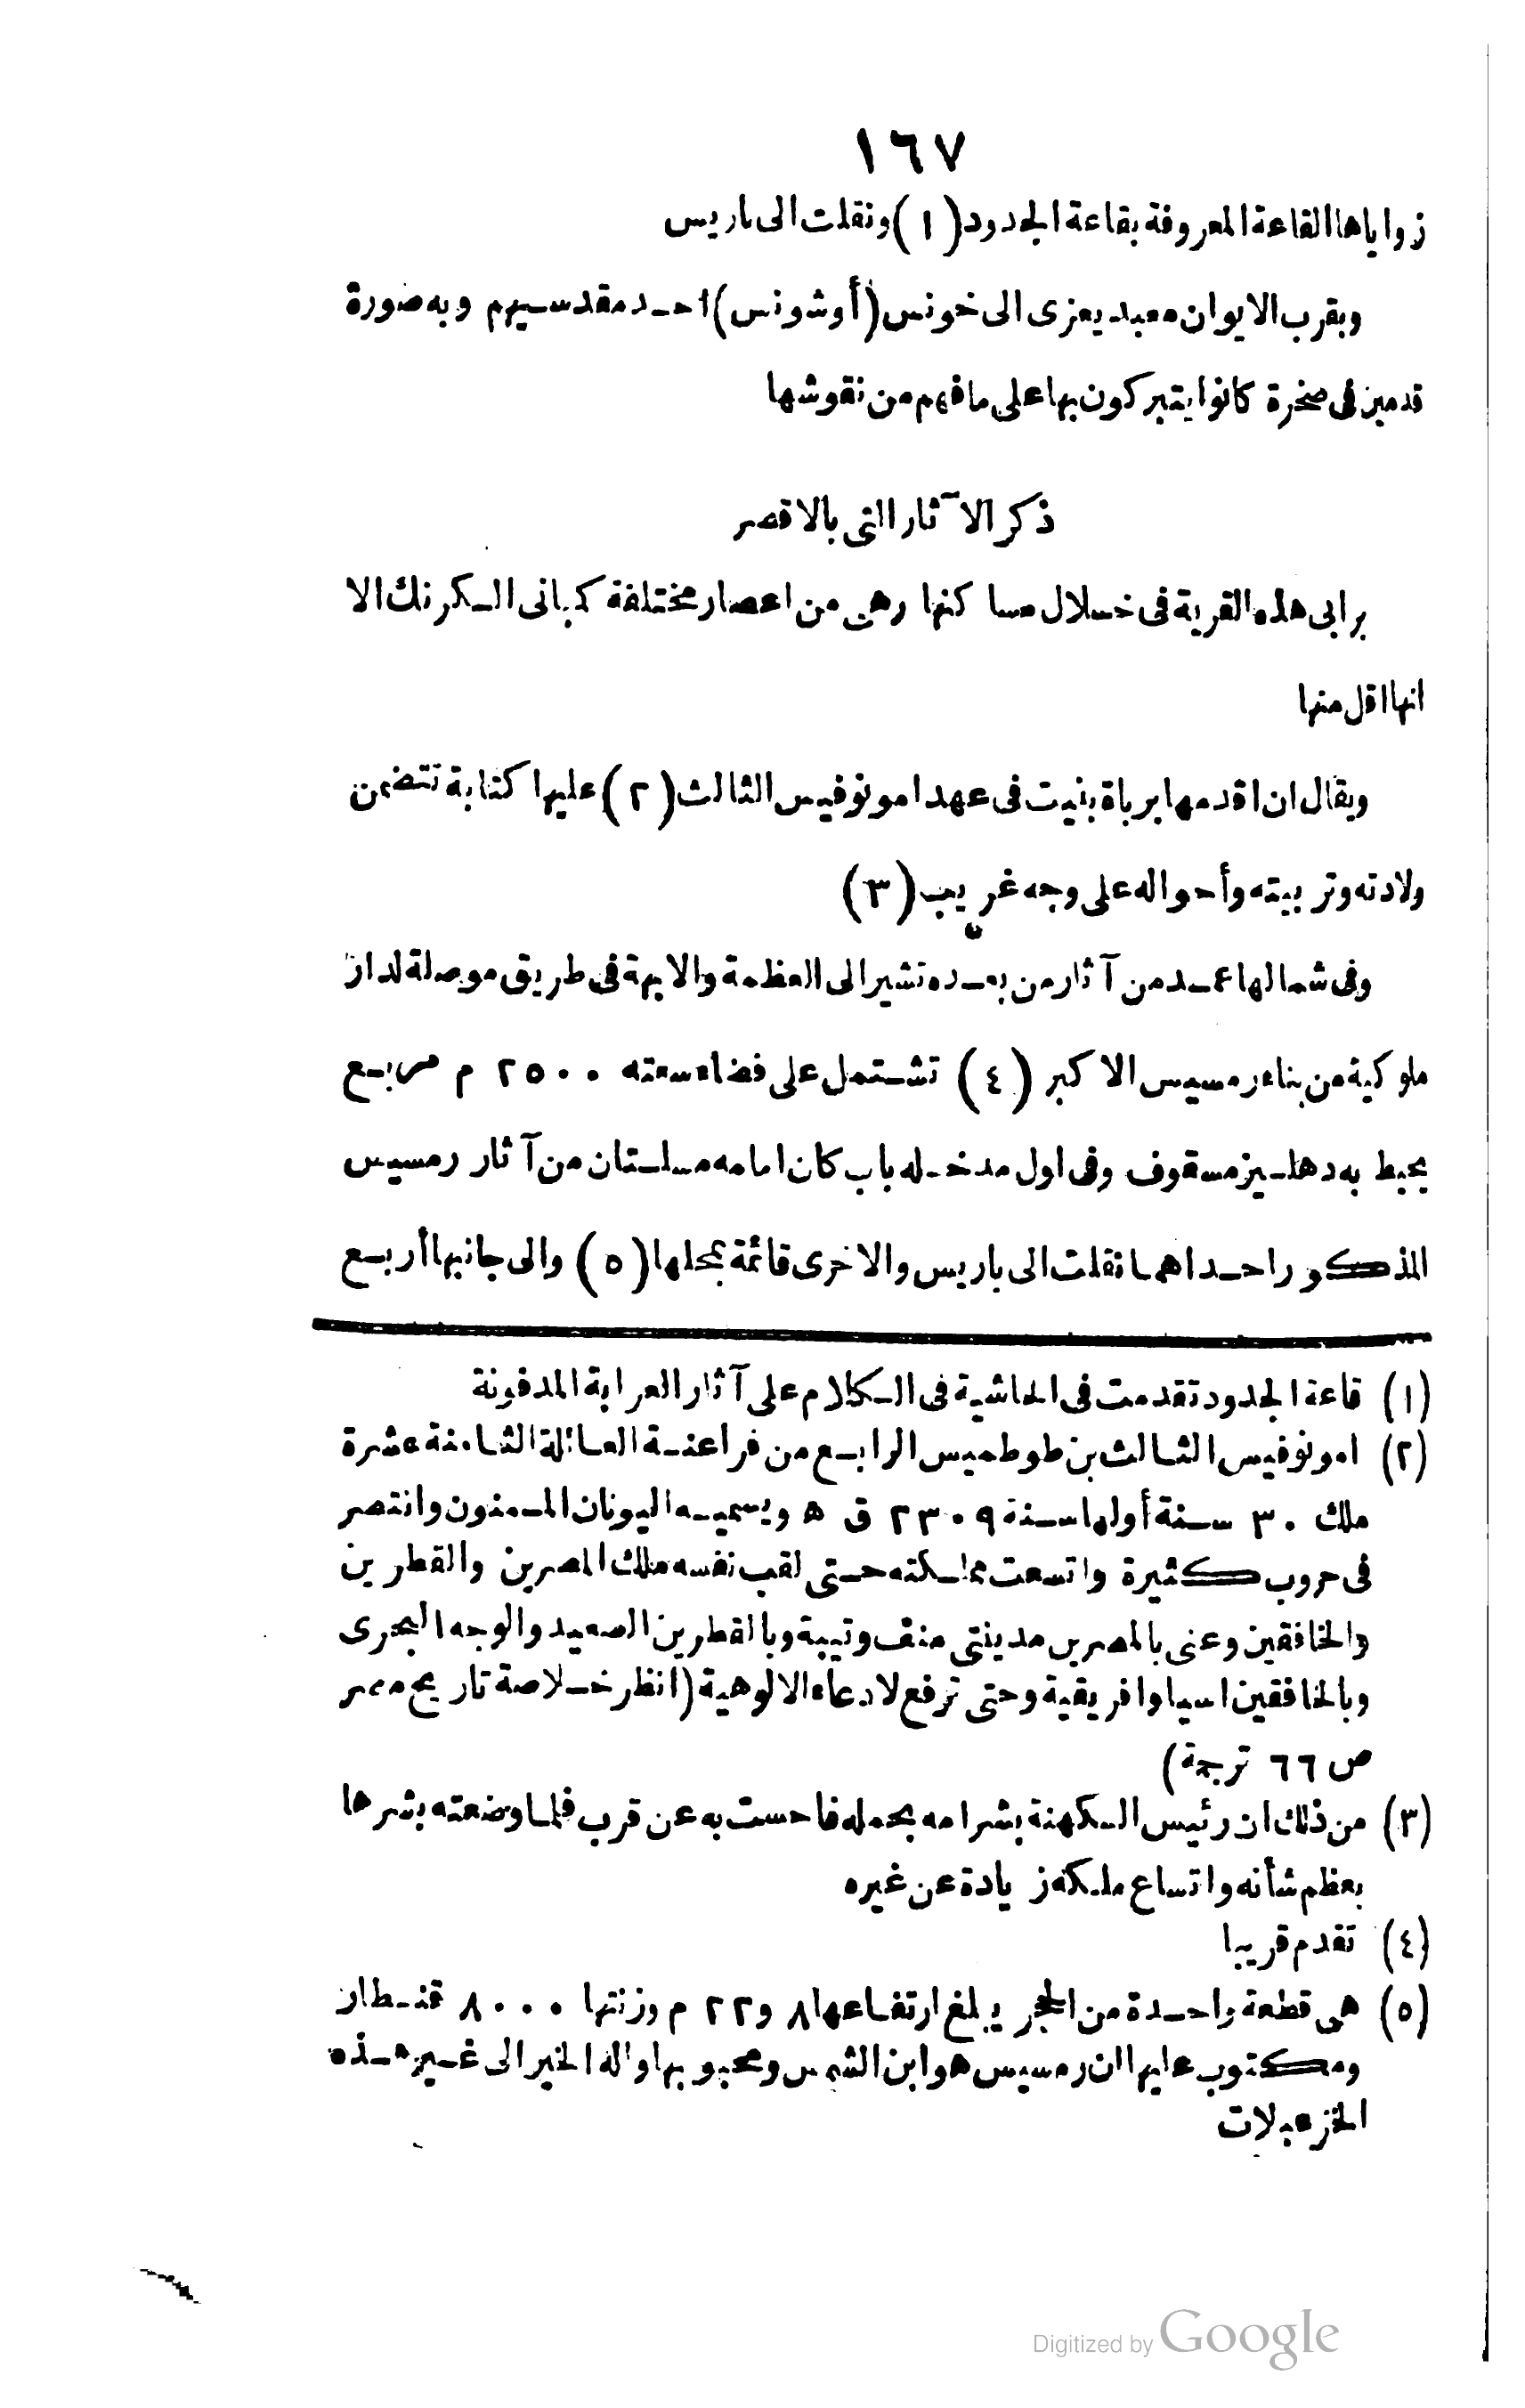 ١٦٧
زواياها القاعة المعروفة بقاعة الجدود (١) ونقلت الى باريس
وبقرب الايوان معبد يعزى الى خونس (أوشونس) احد مقدسيهم وبه صورة
قدمين فى صخرة كانوا يتبركون بها على ما فهم من نقوشها
ذكر الآثار التى بالاقصر
برابى هذه القرية فى خلال مساكنها وهى من اعصار مختلفة كمبانى الكرنك الا
انها اقل منها
ويقال ان اقدمها برباة بنيت فى عهد امونوفيس الثالث (٢) عليها كتابة تتضمن
ولادته وتربيته وأحواله على وجه غريب (٣)
وفى شمالها عمد من آثار من بعده تشير الى العظمة والابهة فى طريق موصلة لدار
ملوكية من بناء رمسيس الاكبر (٤) تشتمل على فضاء سعته ٢٥٠٠ م مربع
يحيط به دهليز مسقوف وفى اول مدخله باب كان امامه مسلتان من آثار رمسيس
المذكور احداهما نقلت الى باريس والاخرى قائمة بمحلها (٥) والى جانبها أربع
(١) قاعة الجدود تقدمت فى الحاشية فى الكلام على آثار العرابة المدفونة
(٢) امونوفيس الثالث بن طوطميس الرابع من فراعنة العائلة الثامنة عشرة
ملك ٣٠ سنة أولها سنة ٢٣٠٩ ق ه ويسميه اليونان الممنون وانتصر
فى حروب كثيرة واتسعت مملكته حتى لقب نفسه ملك المصرين والقطرين
والخافقين وعنى بالمصرين مدينتى منف وتيبة وبالقطرين الصعيد والوجه البحرى
وبالخافقين اسيا وافريقية وحتى ترفع لادعاء الالوهية (انظر خلاصة تاريخ مصر
ص ٦٦ ترجمة)
(٣) من ذلك ان رئيس الكهنة بشر امه بحمله فاحست به عن قرب فلما وضعته بشرها
بعظم شأنه واتساع ملكه زيادة عن غيره
(٤) تقدم قريبا
(٥) هى قطعة واحدة من الحجر يبلغ ارتفاعها ٨ و٢٢ م وزنتها ٨٠٠٠ قنطار
ومكتوب عليها ان رمسيس هو ابن الشمس ومحبوبها واله الخير الى غير هذه
الخزعبلات
Digitized by Google